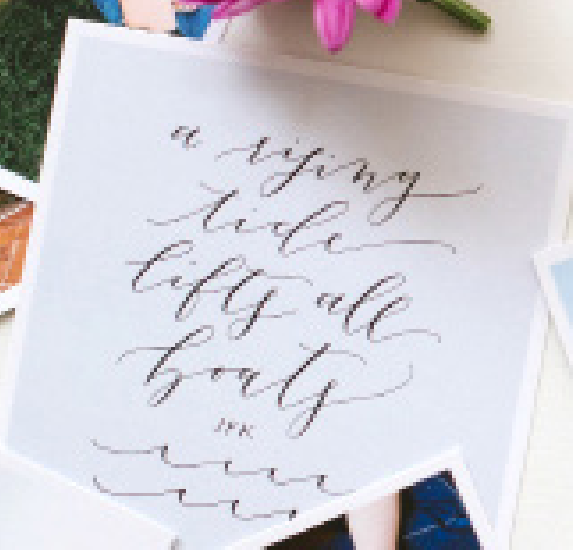 a rising
tide
lifts all
boats
JFK